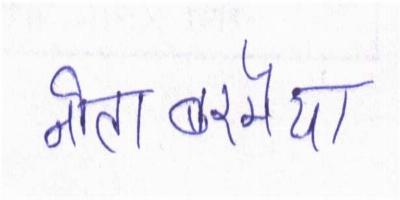 नीता बरमैया